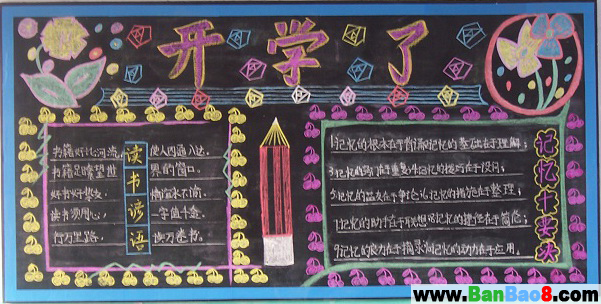 开学了
读书谚语
书籍好比河流,使人四通八达。
书籍是瞭望世界的窗口。
好书好比
读书须用心,一字值千金。
行万里路,读万卷书。
记忆十要决
1记忆的根本在于背诵2记忆的基础在于理解;
3记忆的窍门在于重复4记忆的技巧在于
5记忆的益友在于争论6记忆的捷径在于整理;
7记忆的助手在于联想8记忆的捷径在于简化;
9记忆的良方在于摘录10记忆的动力在于应用。
www.BanBao8.com